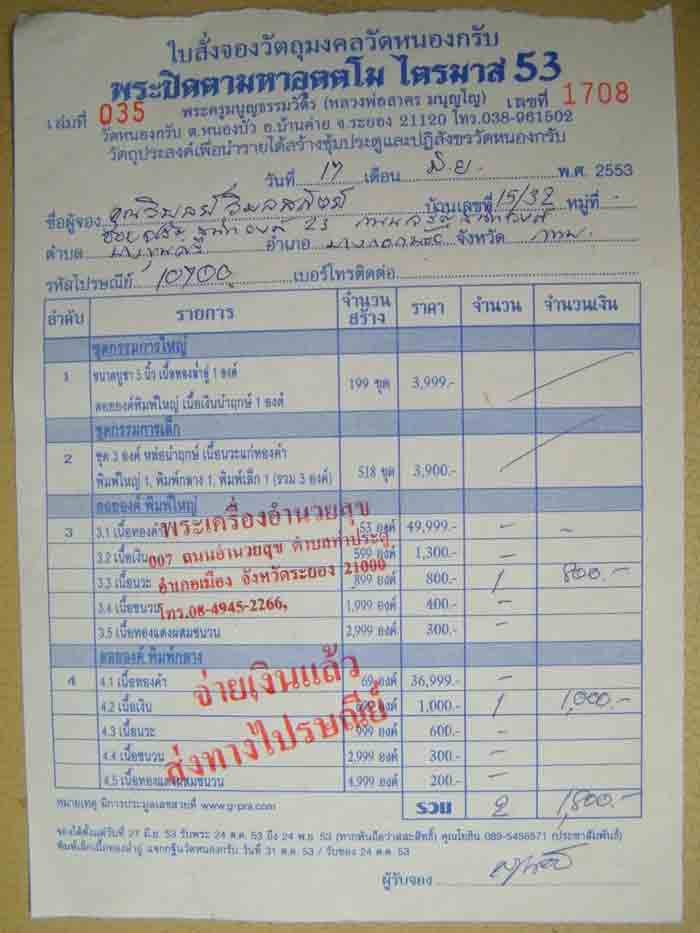 ใบสั่งจองวัตถุมงคลวัดหนองกรับ
พระปิดตามหาอุตตโม ไตรมาส 53
เล่มที่ 035 พระครูมนูญธรรมวัตร (หลวงพ่อสาคร มนุญฺโญ) เลขที่ 1708
วัดหนองกรับ ต.หนองบัว อ.บ้านค่าย จ.ระยอง 21120 โทร.038-961502
วัตถุประสงค์เพื่อนำรายได้สร้างซุ้มประตูและปฏิสังขรวัดหนองกรับ
วันที่ 17 เดือน มิ.ย. พ.ศ. 2553
ชื่อผู้จอง บ้านเลขที่ 15/32 หมู่ที่ -
ซอย 23
ตำบล อำเภอ จังหวัด กทม.
รหัสไปรษณีย์ 10700 เบอร์โทรติดต่อ
ลำดับ รายการ จำนวนสร้าง ราคา จำนวน จำนวนเงิน
ชุดกรรมการใหญ่
1 ขนาดบูชา 5 นิ้ว เนื้อทองฝาอู่ 1 องค์ 199 ชุด 3,999.-
ลอยองค์พิมพ์ใหญ่ เนื้อเงินนำฤกษ์ 1 องค์
ชุดกรรมการเล็ก
2 ชุด 3 องค์ หล่อนำฤกษ์ เนื้อนวะแก่ทองคำ
พิมพ์ใหญ่ 1, พิมพ์กลาง 1, พิมพ์เล็ก 1 (รวม 3 องค์) 518 ชุด 3,900.-
ลอยองค์ พิมพ์ใหญ่
3 3.1 เนื้อทองคำ 53 องค์ 49,999.- - -
3.2 เนื้อเงิน 599 องค์ 1,300.- -
3.3 เนื้อนวะ 899 องค์ 800.- 1 800.-
3.4 เนื้อชนวน 1,999 องค์ 400.- -
3.5 เนื้อทองแดงผสมชนวน 2,999 องค์ 300.- -
พระเครื่องอำนวยสุข
007 ถนนอำนวยสุข ตำบลท่าประดู่
อำเภอเมือง จังหวัดระยอง 21000
โทร.08-4945-2266,
ลอยองค์ พิมพ์กลาง
4 4.1 เนื้อทองคำ 69 องค์ 36,999.- -
4.2 เนื้อเงิน องค์ 1,000.- 1 1,000.-
4.3 เนื้อนวะ 999 องค์ 600.- -
4.4 เนื้อชนวน 2,999 องค์ 300.- -
4.5 เนื้อทองแดงผสมชนวน 4,999 องค์ 200.- -
จ่ายเงินแล้ว
ส่งทางไปรษณีย์
หมายเหตุ มีการประมูลเลขสวยที่ www.g-pra.com รวม 2 1,800.-
จองได้ตั้งแต่วันที่ 27 มิ.ย. 53 รับพระ 24 ต.ค. 53 ถึง 24 พ.ย. 53 (หากพ้นถือว่าสละสิทธิ์) คุณโยธิน 089-5456571 (ประชาสัมพันธ์)
พิมพ์เล็กเนื้อทองฝาอู่ แจกกฐินวัดหนองกรับ วันที่ 31 ต.ค. 53 / รับของ 24 ต.ค. 53
ผู้รับจอง